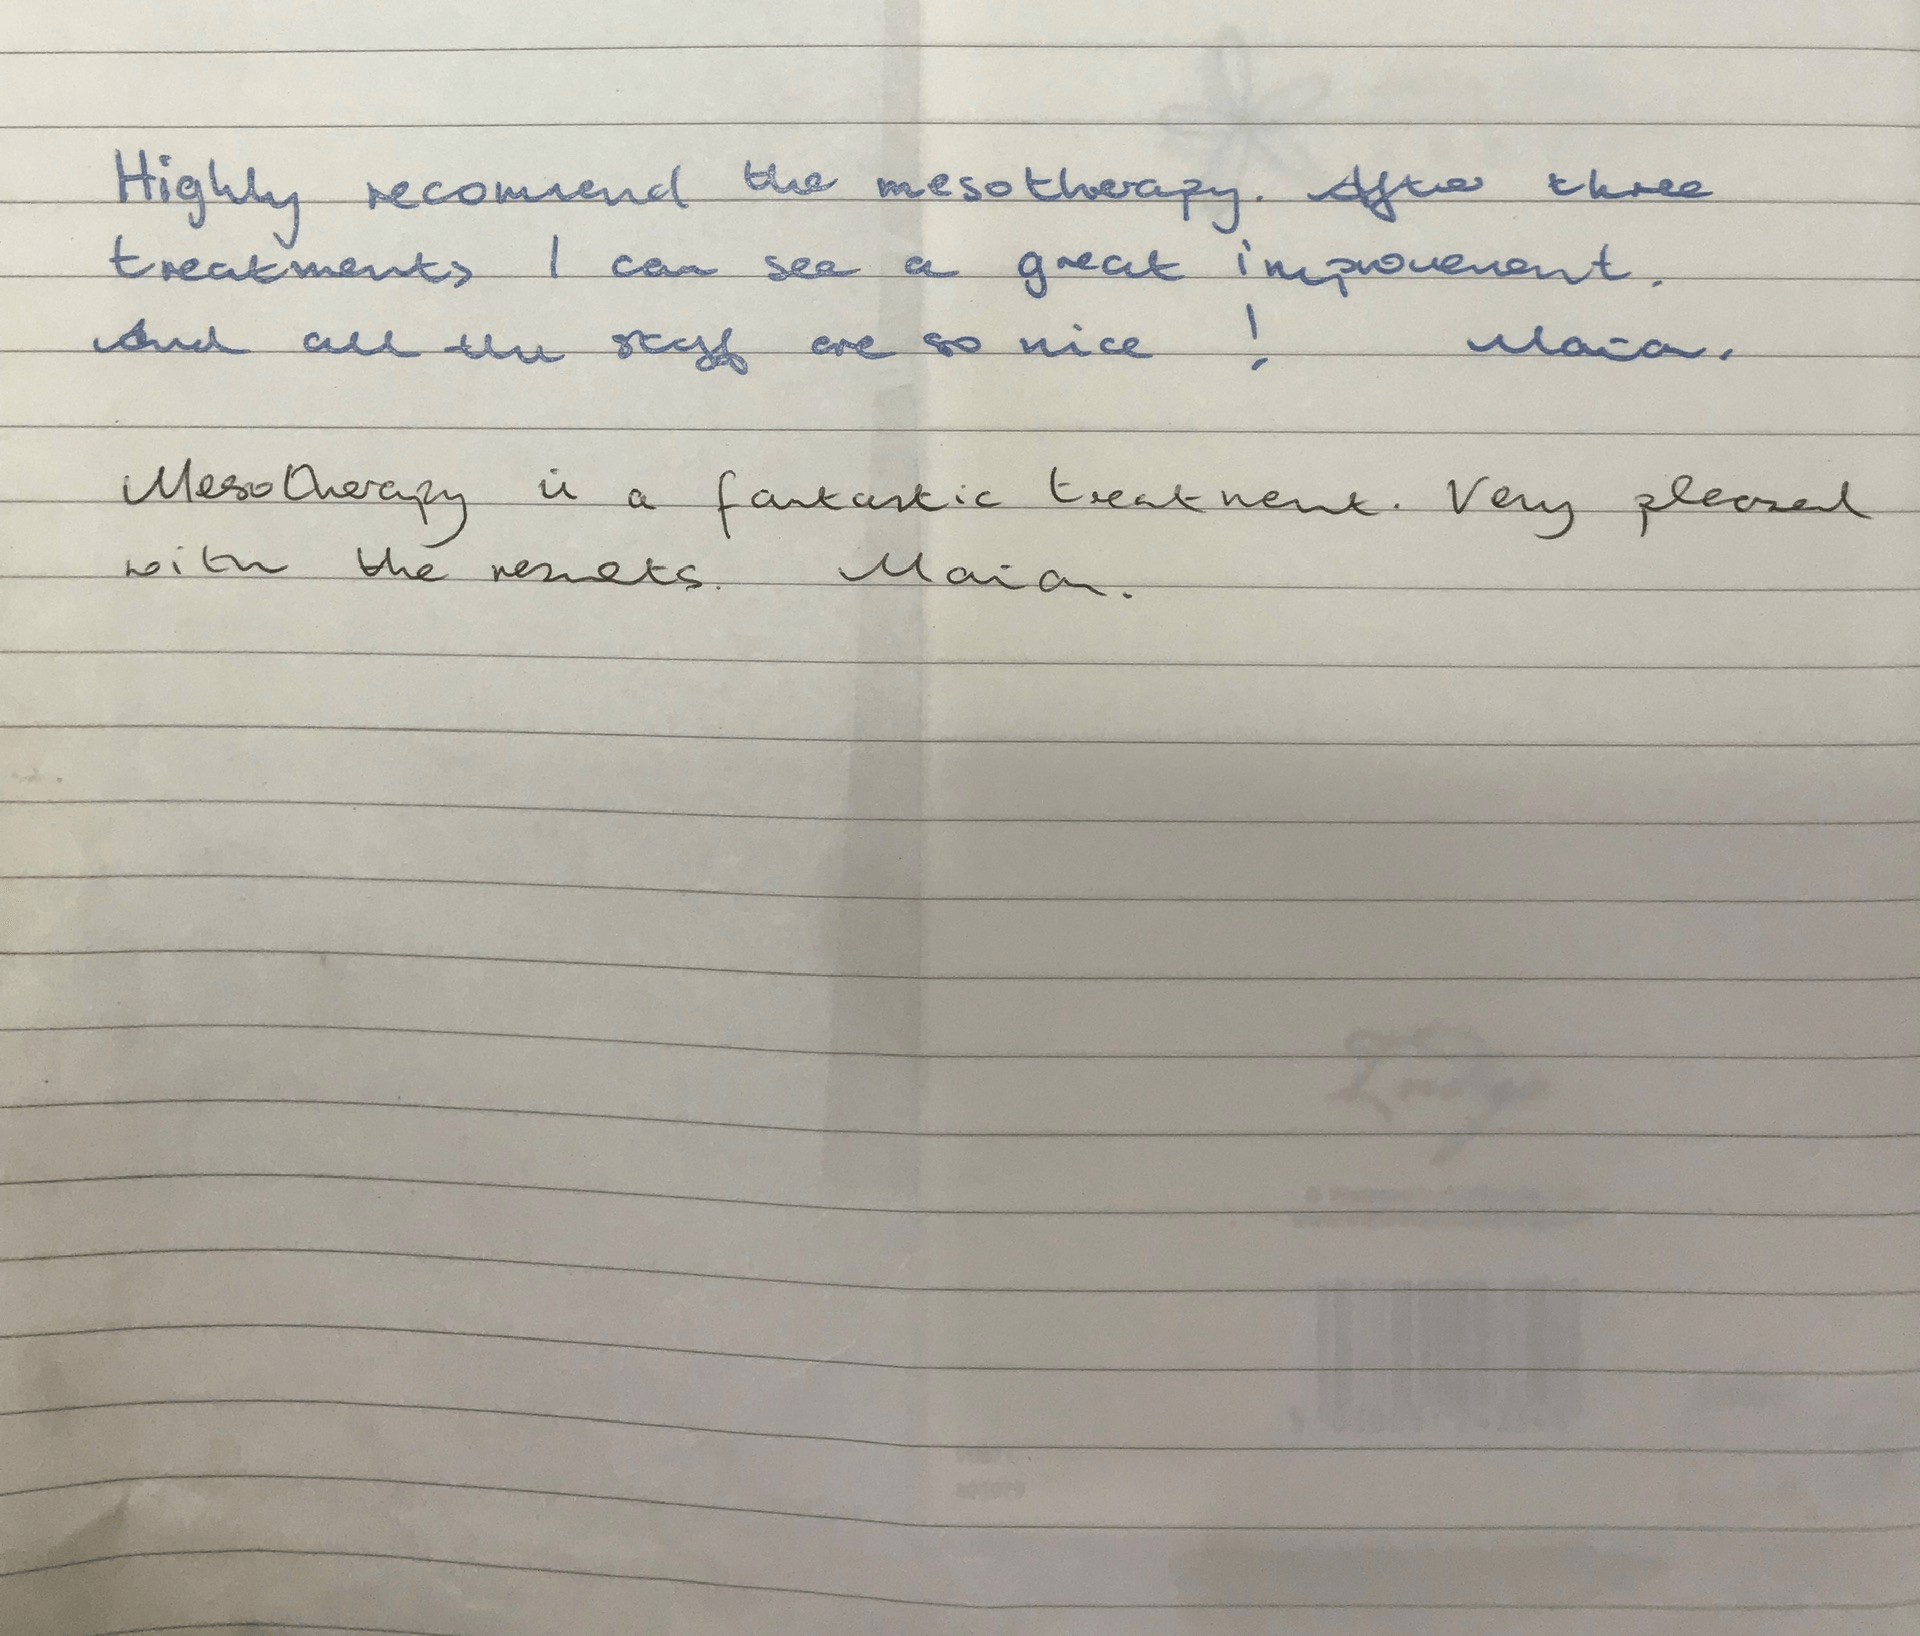 Highly recommend the mesotherapy. After three
treatments I can see a great improvement.
And all the staff are so nice ! Maia.
Mesotherapy is a fantastic treatment. Very pleased
with the results. Maia.